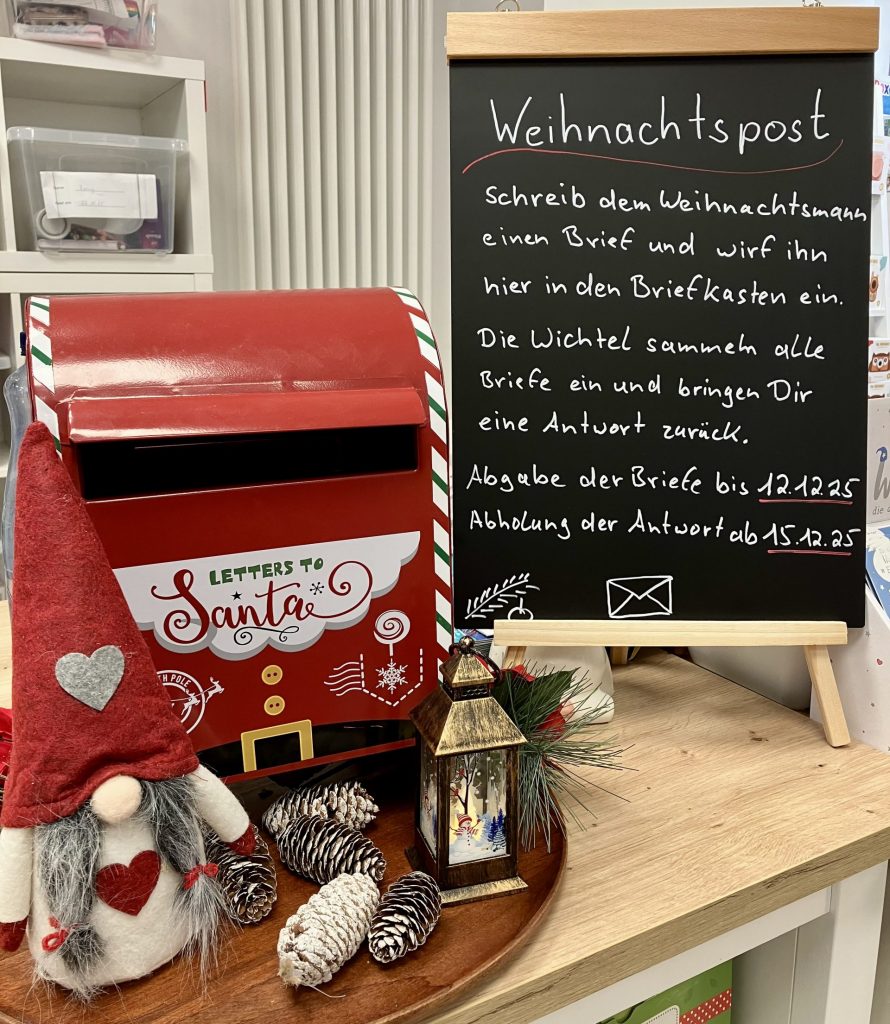 Weihnachtspost
Schreib dem Weihnachtsmann
einen Brief und wirf ihn
hier in den Briefkasten ein.
Die Wichtel sammeln alle
Briefe ein und bringen Dir
eine Antwort zurück.
Abgabe der Briefe bis 12.12.25
Abholung der Antwort ab 15.12.25
LETTERS TO
Santa